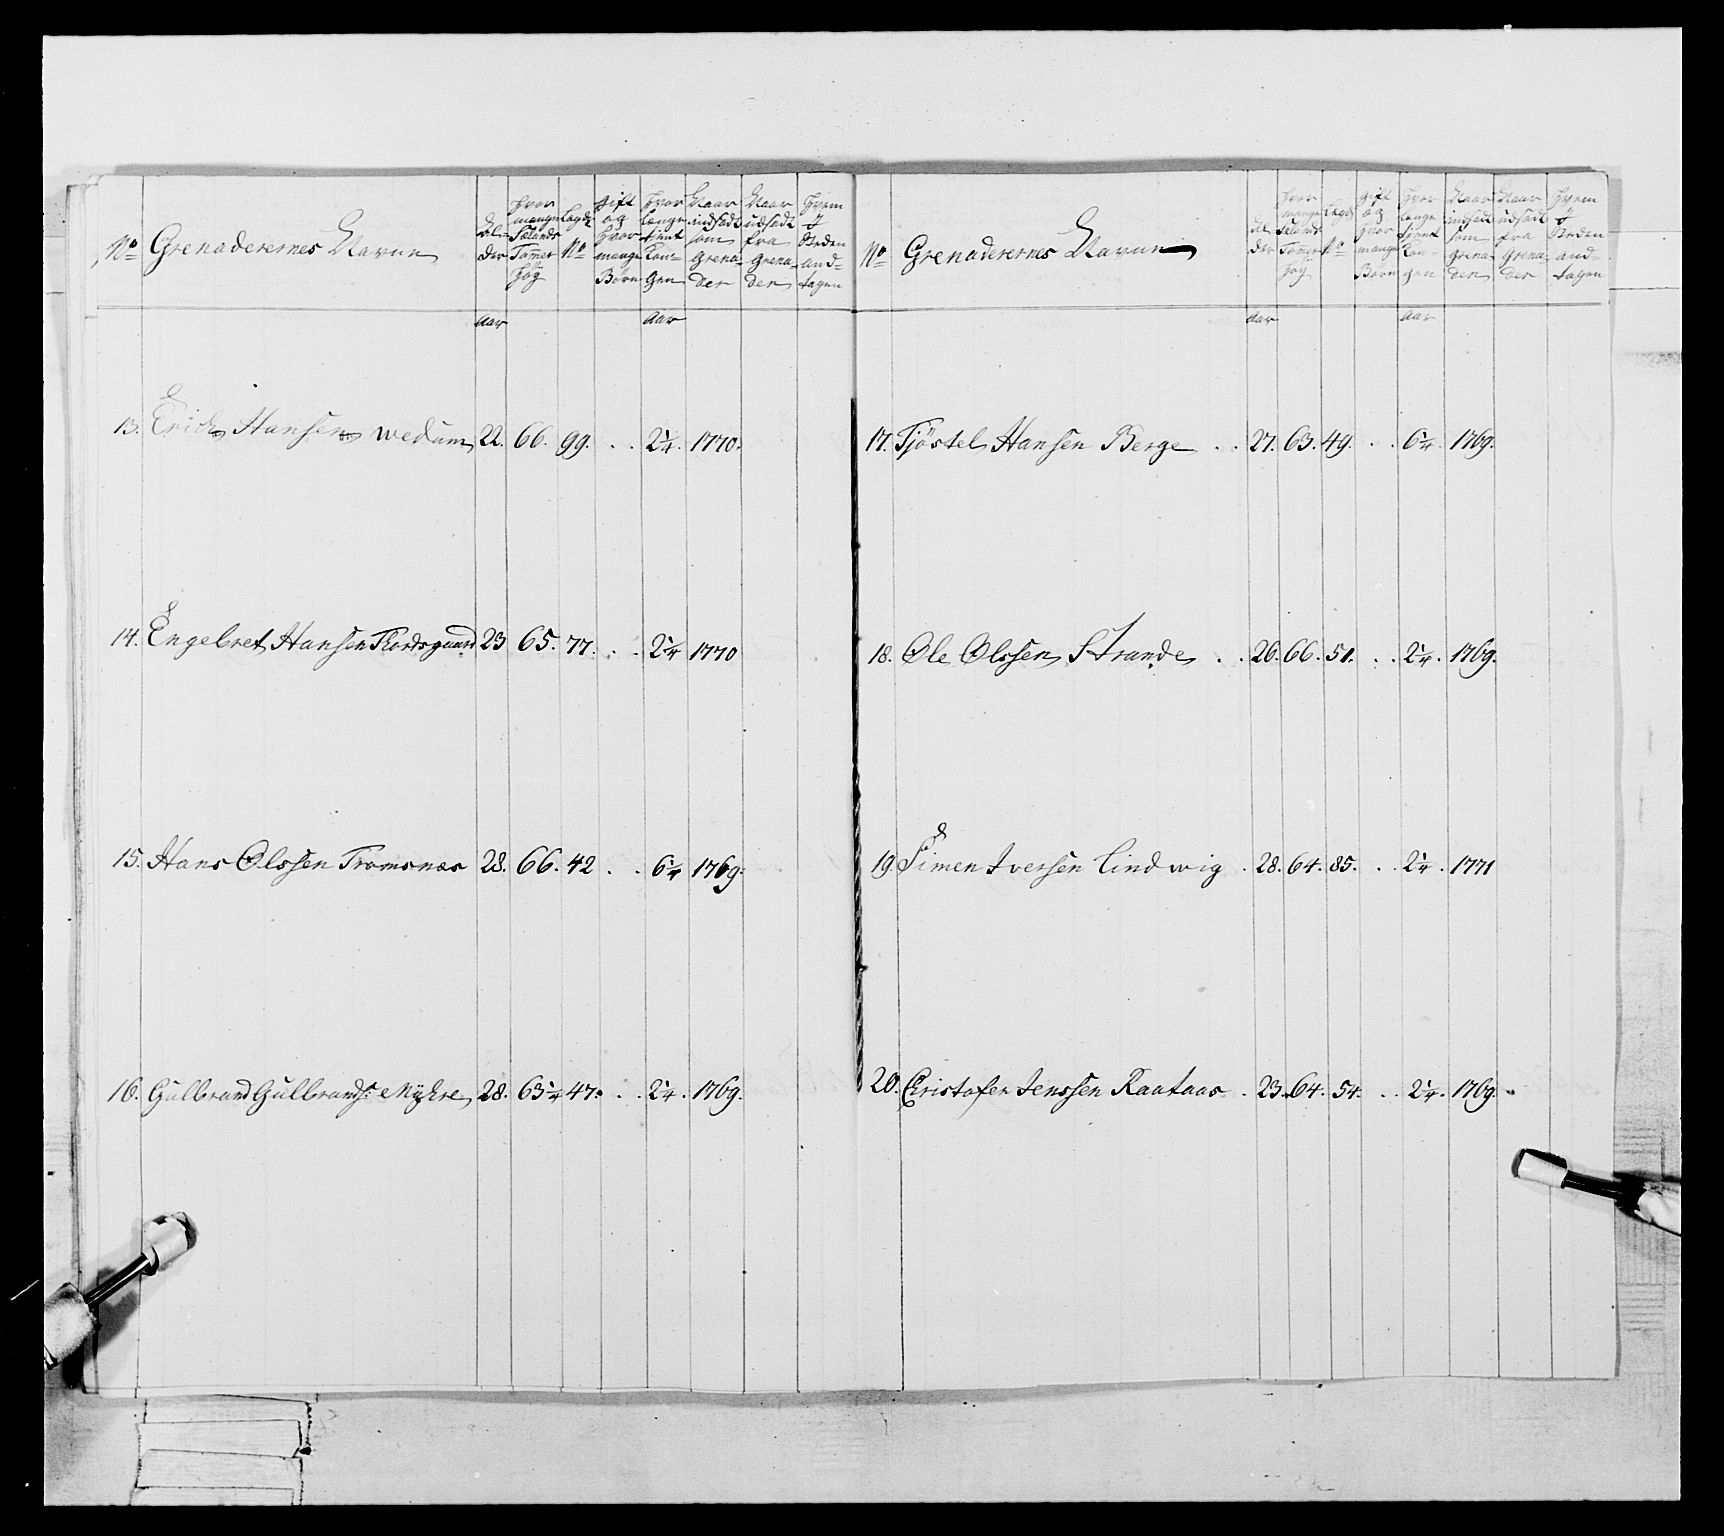 No Grenaderernes Navne Al-der Hvor mange Sælands Tomer Høy Lægds No Gift og Hvor mange Børn Hvor længe tient Kon-gen Naar indsadt som Grena-der Naar udsadt fra Grena-der Hvem J Steden and-tagen
Aar Aar
13. Erich Hansen Wedum 22. 66. 99. . . 2¼. 1770.
14. Engelbret Hansen Thordsgaard 23 65. 77. . . 2¼ 1770
15. Hans Olssen Tromsnæs 28. 66. 42 . . 6¼ 1769.
16. Gulbrand Gulbrands: Mykre 28. 63¼ 47. . . 2¼. 1769.
No Grenaderernes Navne Al-der Hvor mange Sælands Tomer Høy Lægds No Gift og Hvor mange Børn Hvor længe tient Kon-gen Naar indsadt som Grena-der Naar udsadt fra Grena-der Hvem J Steden and-tagen
Aar Aar
17. Tjöstel Hansen Berge . . 27. 63. 49. . . 6¼. 1769.
18. Ole Olssen Strande . . 26. 66. 51. . . 2¼. 1769.
19. Simen Iversen Lindwig . 28. 64. 85. . . 2¼. 1771
20. Christofer Jenssen Raataas . 23. 64. 54. . . 2¼. 1769.